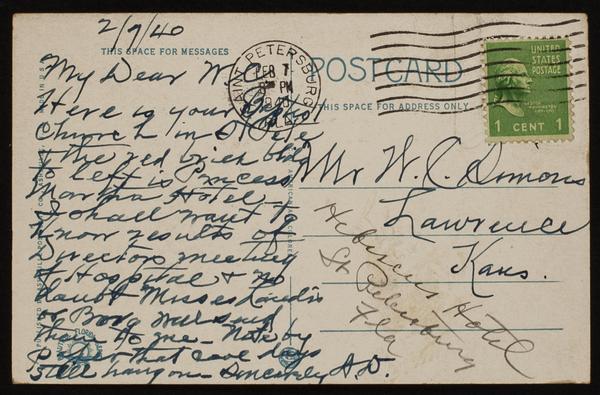 2/9/40
THIS SPACE FOR MESSAGES
My Dear W.C.
Here is your
Church in St Pete
& the red brick bldg
to left is Princess
Martha Hotel
I shall want to
know results of
Directors meeting
of Hospital & no
doubt Misses Landis
or Borg will send
them to me - Note by
Papers that cool days
still hang on - Sincerely A.D.
SAINT PETERSBURG
FEB
PM
1940
FLA.
POSTCARD
THIS SPACE FOR ADDRESS ONLY
UNITED
STATES
POSTAGE
1 CENT 1
Mr W. C. Simons
Lawrence
Kans.
Hibiscus Hotel
St Petersburg
Fla